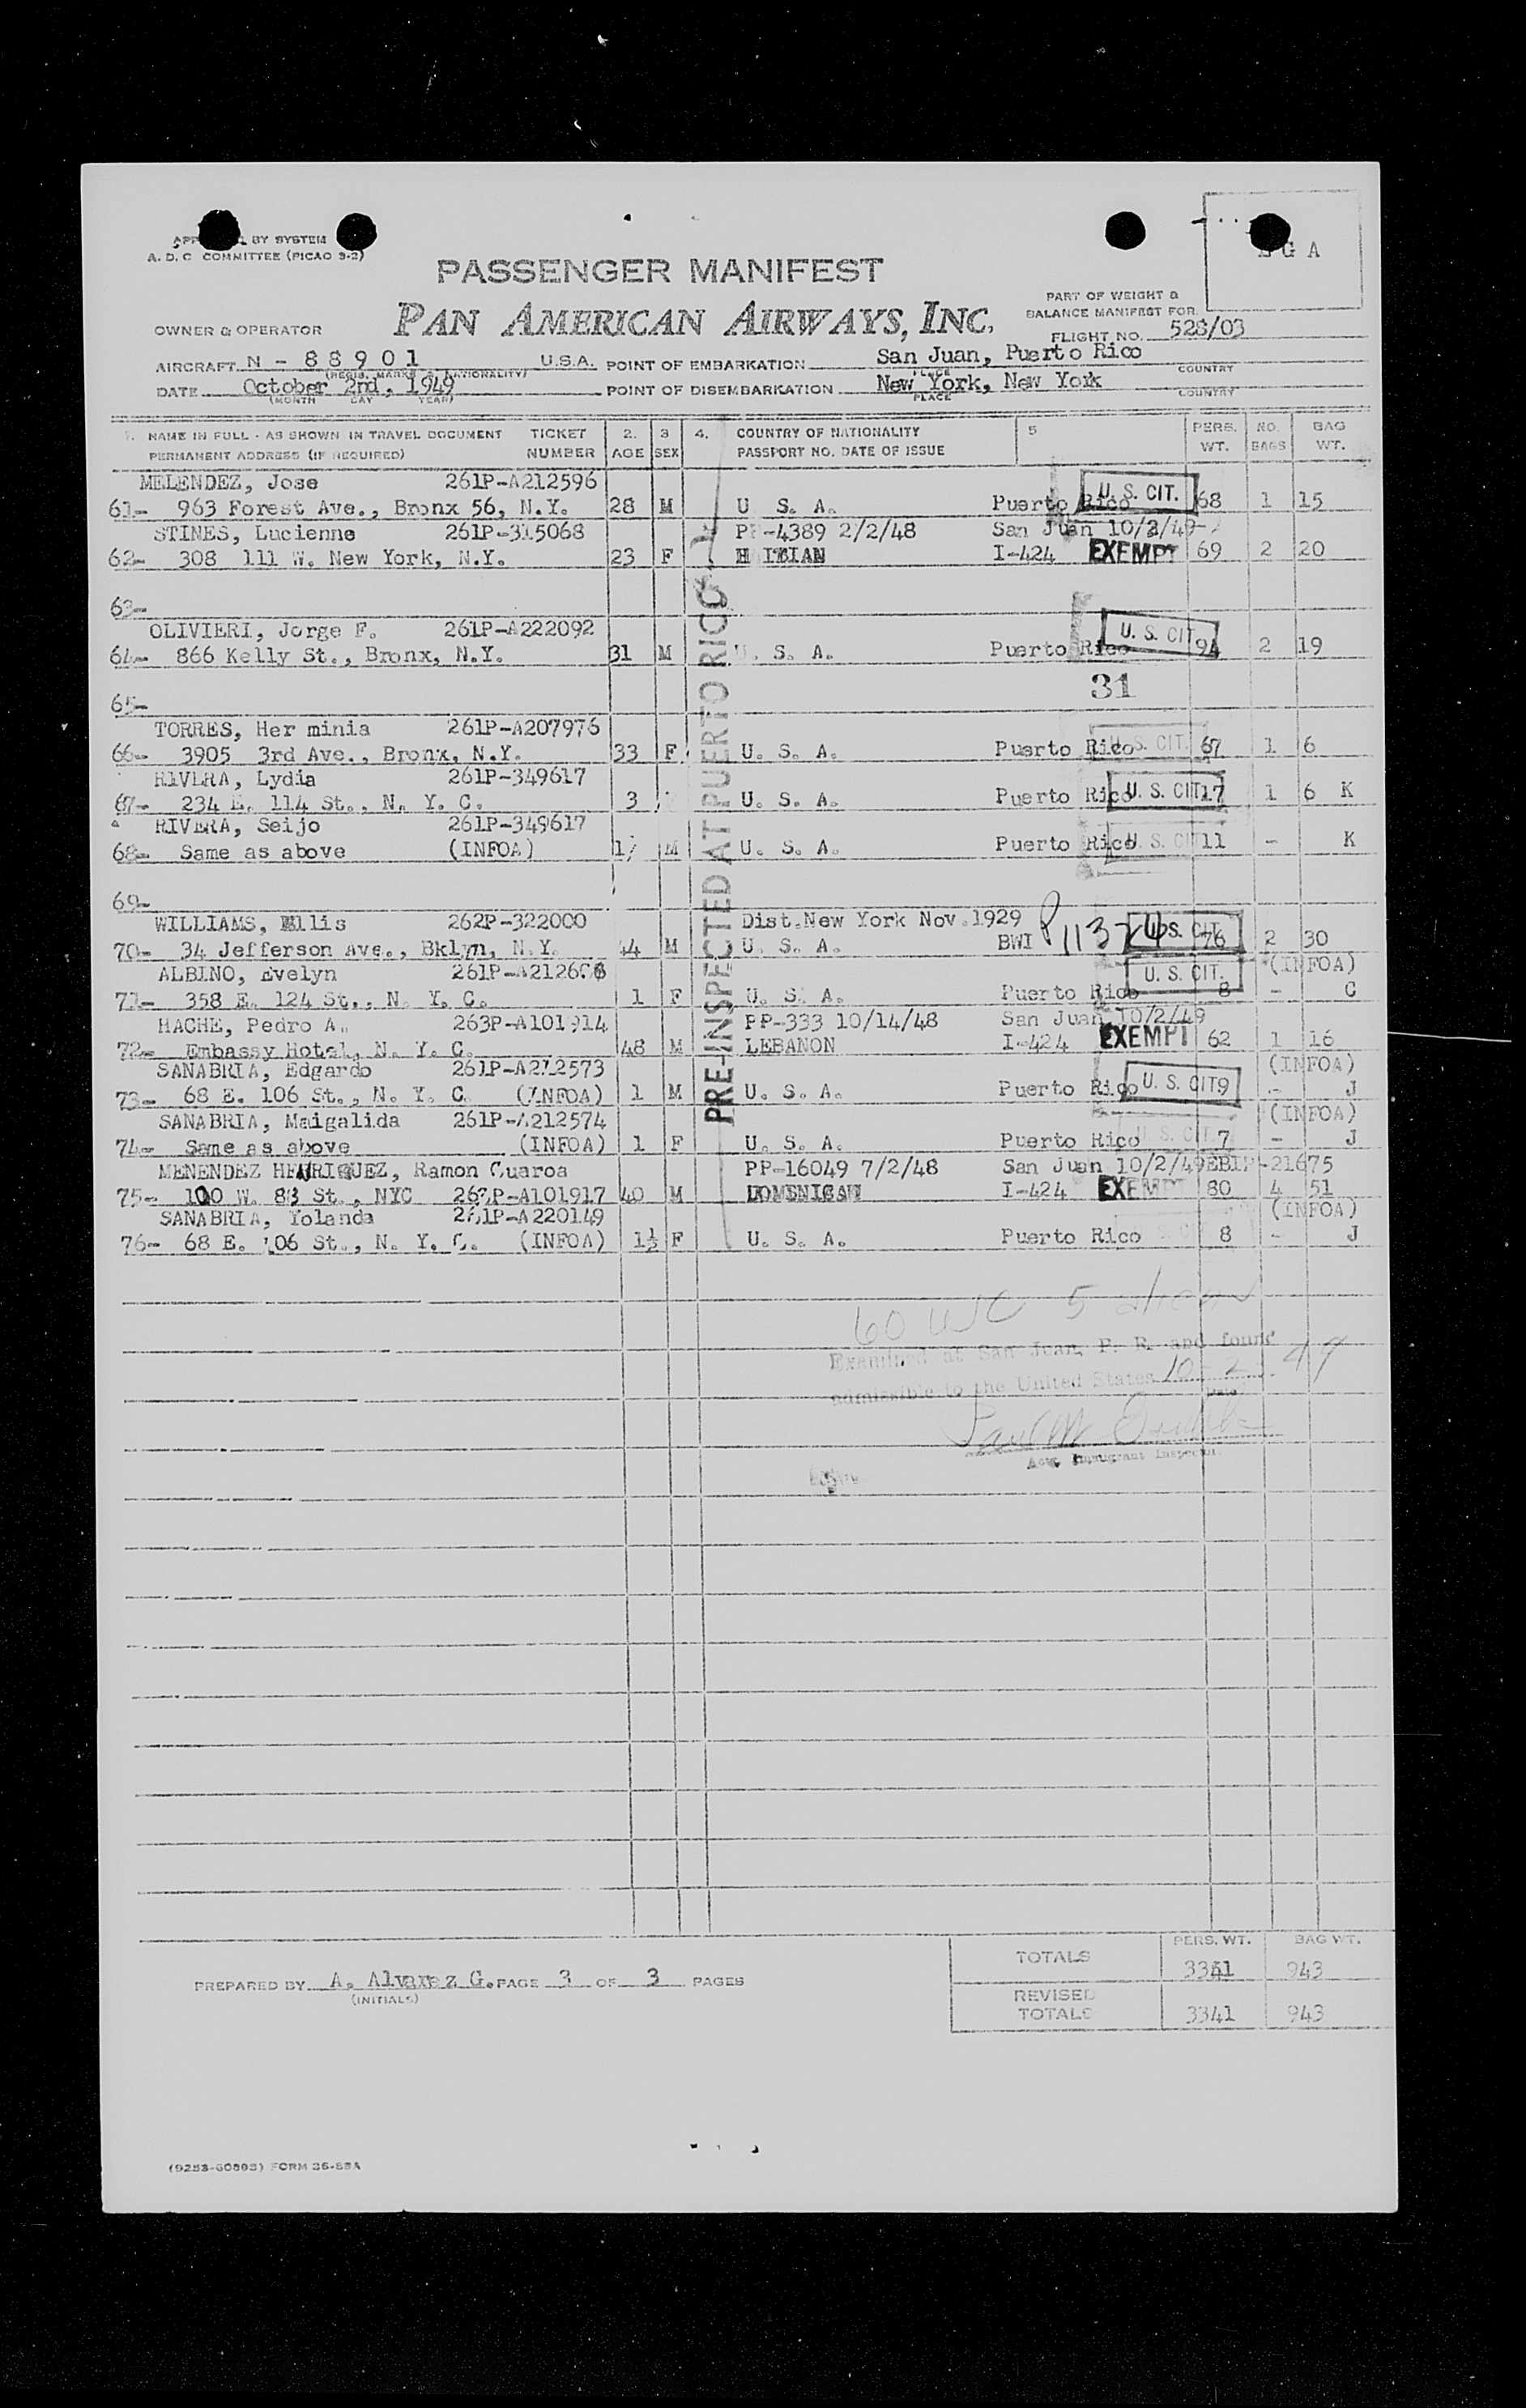 BY SYSTEM
A. D. C. COMMITTEE (PICAO 9-2)
G A
PASSENGER MANIFEST
PAN AMERICAN AIRWAYS, INC.
PART OF WEIGHT &
BALANCE MANIFEST FOR
OWNER & OPERATOR
FLIGHT NO. 528/03
AIRCRAFT N - 88901 U.S.A. POINT OF EMBARKATION San Juan, Puerto Rico
(REGIS. MARKS & NATIONALITY) PLACE COUNTRY
DATE October 2nd, 1949 POINT OF DISEMBARKATION New York, New York
(MONTH DAY YEAR) PLACE COUNTRY
1. NAME IN FULL - AS SHOWN IN TRAVEL DOCUMENT TICKET 2. 3 4. COUNTRY OF NATIONALITY 5 PERS. NO. BAG
PERMANENT ADDRESS (IF REQUIRED) NUMBER AGE SEX PASSPORT NO. DATE OF ISSUE WT. BAGS WT.
MELENDEZ, Jose 261P-A212596
61- 963 Forest Ave., Bronx 56, N.Y. 28 M U S. A. Puerto Rico U. S. CIT. 68 1 15
STINES, Lucienne 261P-315068 PP-4389 2/2/48 San Juan 10/2/49
62- 308 111 W. New York, N.Y. 23 F H ITIAN I-424 EXEMPT 69 2 20
63-
OLIVIERI, Jorge F. 261P-A222092
64- 866 Kelly St., Bronx, N.Y. 31 M U. S. A. Puerto Rico U. S. CIT 94 2 19
31
65-
TORRES, Her minia 261P-A207976
66- 3905 3rd Ave., Bronx, N.Y. 33 F U. S. A. Puerto Rico U. S. CIT. 67 1 6
RIVERA, Lydia 261P-349617
67- 234 E. 114 St., N. Y. C. 3 U. S. A. Puerto Rico U. S. CIT 17 1 6 K
RIVERA, Seijo 261P-349617
68- Same as above (INFOA) M U. S. A. Puerto Rico U. S. CI 11 - K
69-
WILLIAMS, Ellis 262P-322000 Dist. New York Nov. 1929
70- 34 Jefferson Ave., Bklyn, N.Y. 44 M U. S. A. BWI U.S. CIT 76 2 30
ALBINO, Evelyn U. S. CIT. (INFOA)
71- 358 E. 124 St., N. Y. C. 1 F U. S. A. Puerto Rico 8 - C
HACHE, Pedro A. 263P-A101914 PP-333 10/14/48 San Juan 10/2/49
72- Embassy Hotel, N. Y. C. 48 M LEBANON I-424 EXEMPT 62 1 16
SANABRIA, Edgardo 261P-A212573 (INFOA)
73- 68 E. 106 St., N. Y. C. (INFOA) 1 M U. S. A. Puerto Rico U. S. CIT 9 - J
SANABRIA, Maigalida 261P-A212574 (INFOA)
74- Same as above (INFOA) 1 F U. S. A. Puerto Rico S. CIT. 7 - J
MENENDEZ HENRIQUEZ, Ramon Cuaroa PP-16049 7/2/48 San Juan 10/2/49 -21675
75- 100 W. 83 St., NYC 263P-A101917 40 M DOMINICAN I-424 EXEMPT 80 4 51
SANABRIA, Yolanda 261P-A220149 (INFOA)
76- 68 E. 106 St., N. Y. C. (INFOA) 1½ F U. S. A. Puerto Rico 8 - J
PRE-INSPECTED AT PUERTO RICO
60 USC 5 aliens
Examined at San Juan, P. R. and found
admissible to the United States 10-2-49
Date
Actg. Immigrant Inspector
TOTALS PERS. WT. BAG WT.
3341 943
PREPARED BY A. Alvarez G. PAGE 3 OF 3 PAGES
(INITIALS)
REVISED
TOTALS 3341 943